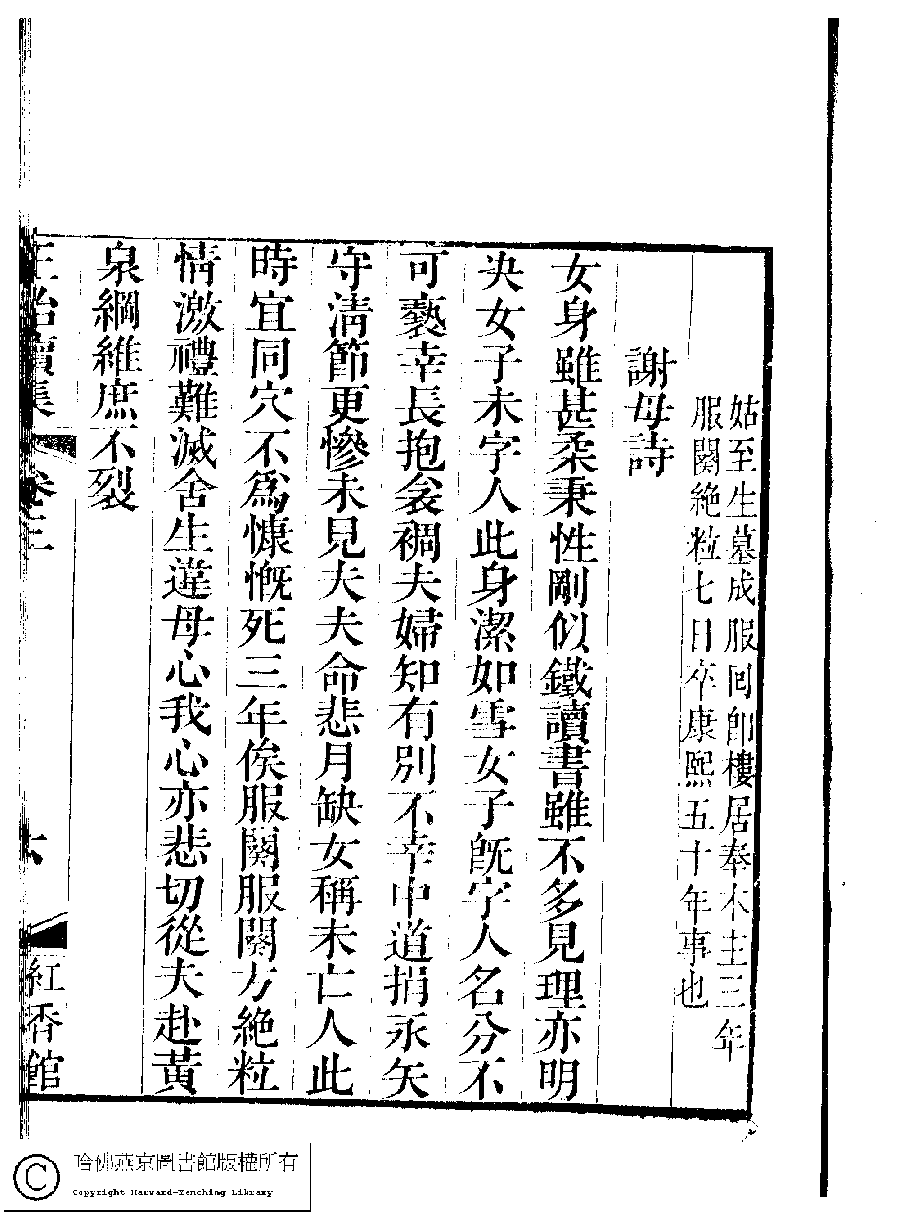 姑至生墓成服回卽樓居奉木主三年
服闋絶粒七日卒康熙五十年事也
謝母詩
女身雖甚柔秉性剛似鐵讀書雖不多見理亦明
決女子未字人此身潔如雪女子旣字人名分不
可褻幸長抱衾裯夫婦知有別不幸中道捐永矢
守淸節更慘未見夫夫命悲月缺女稱未亡人此
時宜同穴不爲慷慨死三年俟服闋服闋方絶粒
情激禮難滅舍生違母心我心亦悲切從夫赴黃
泉綱維庶不裂
正始續集 卷二 六 紅香館
哈佛燕京圖書館版權所有
Copyright Harvard-Yenching Library